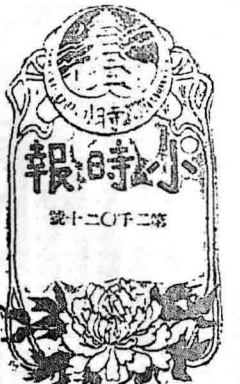 小時報
第二千〇二十號